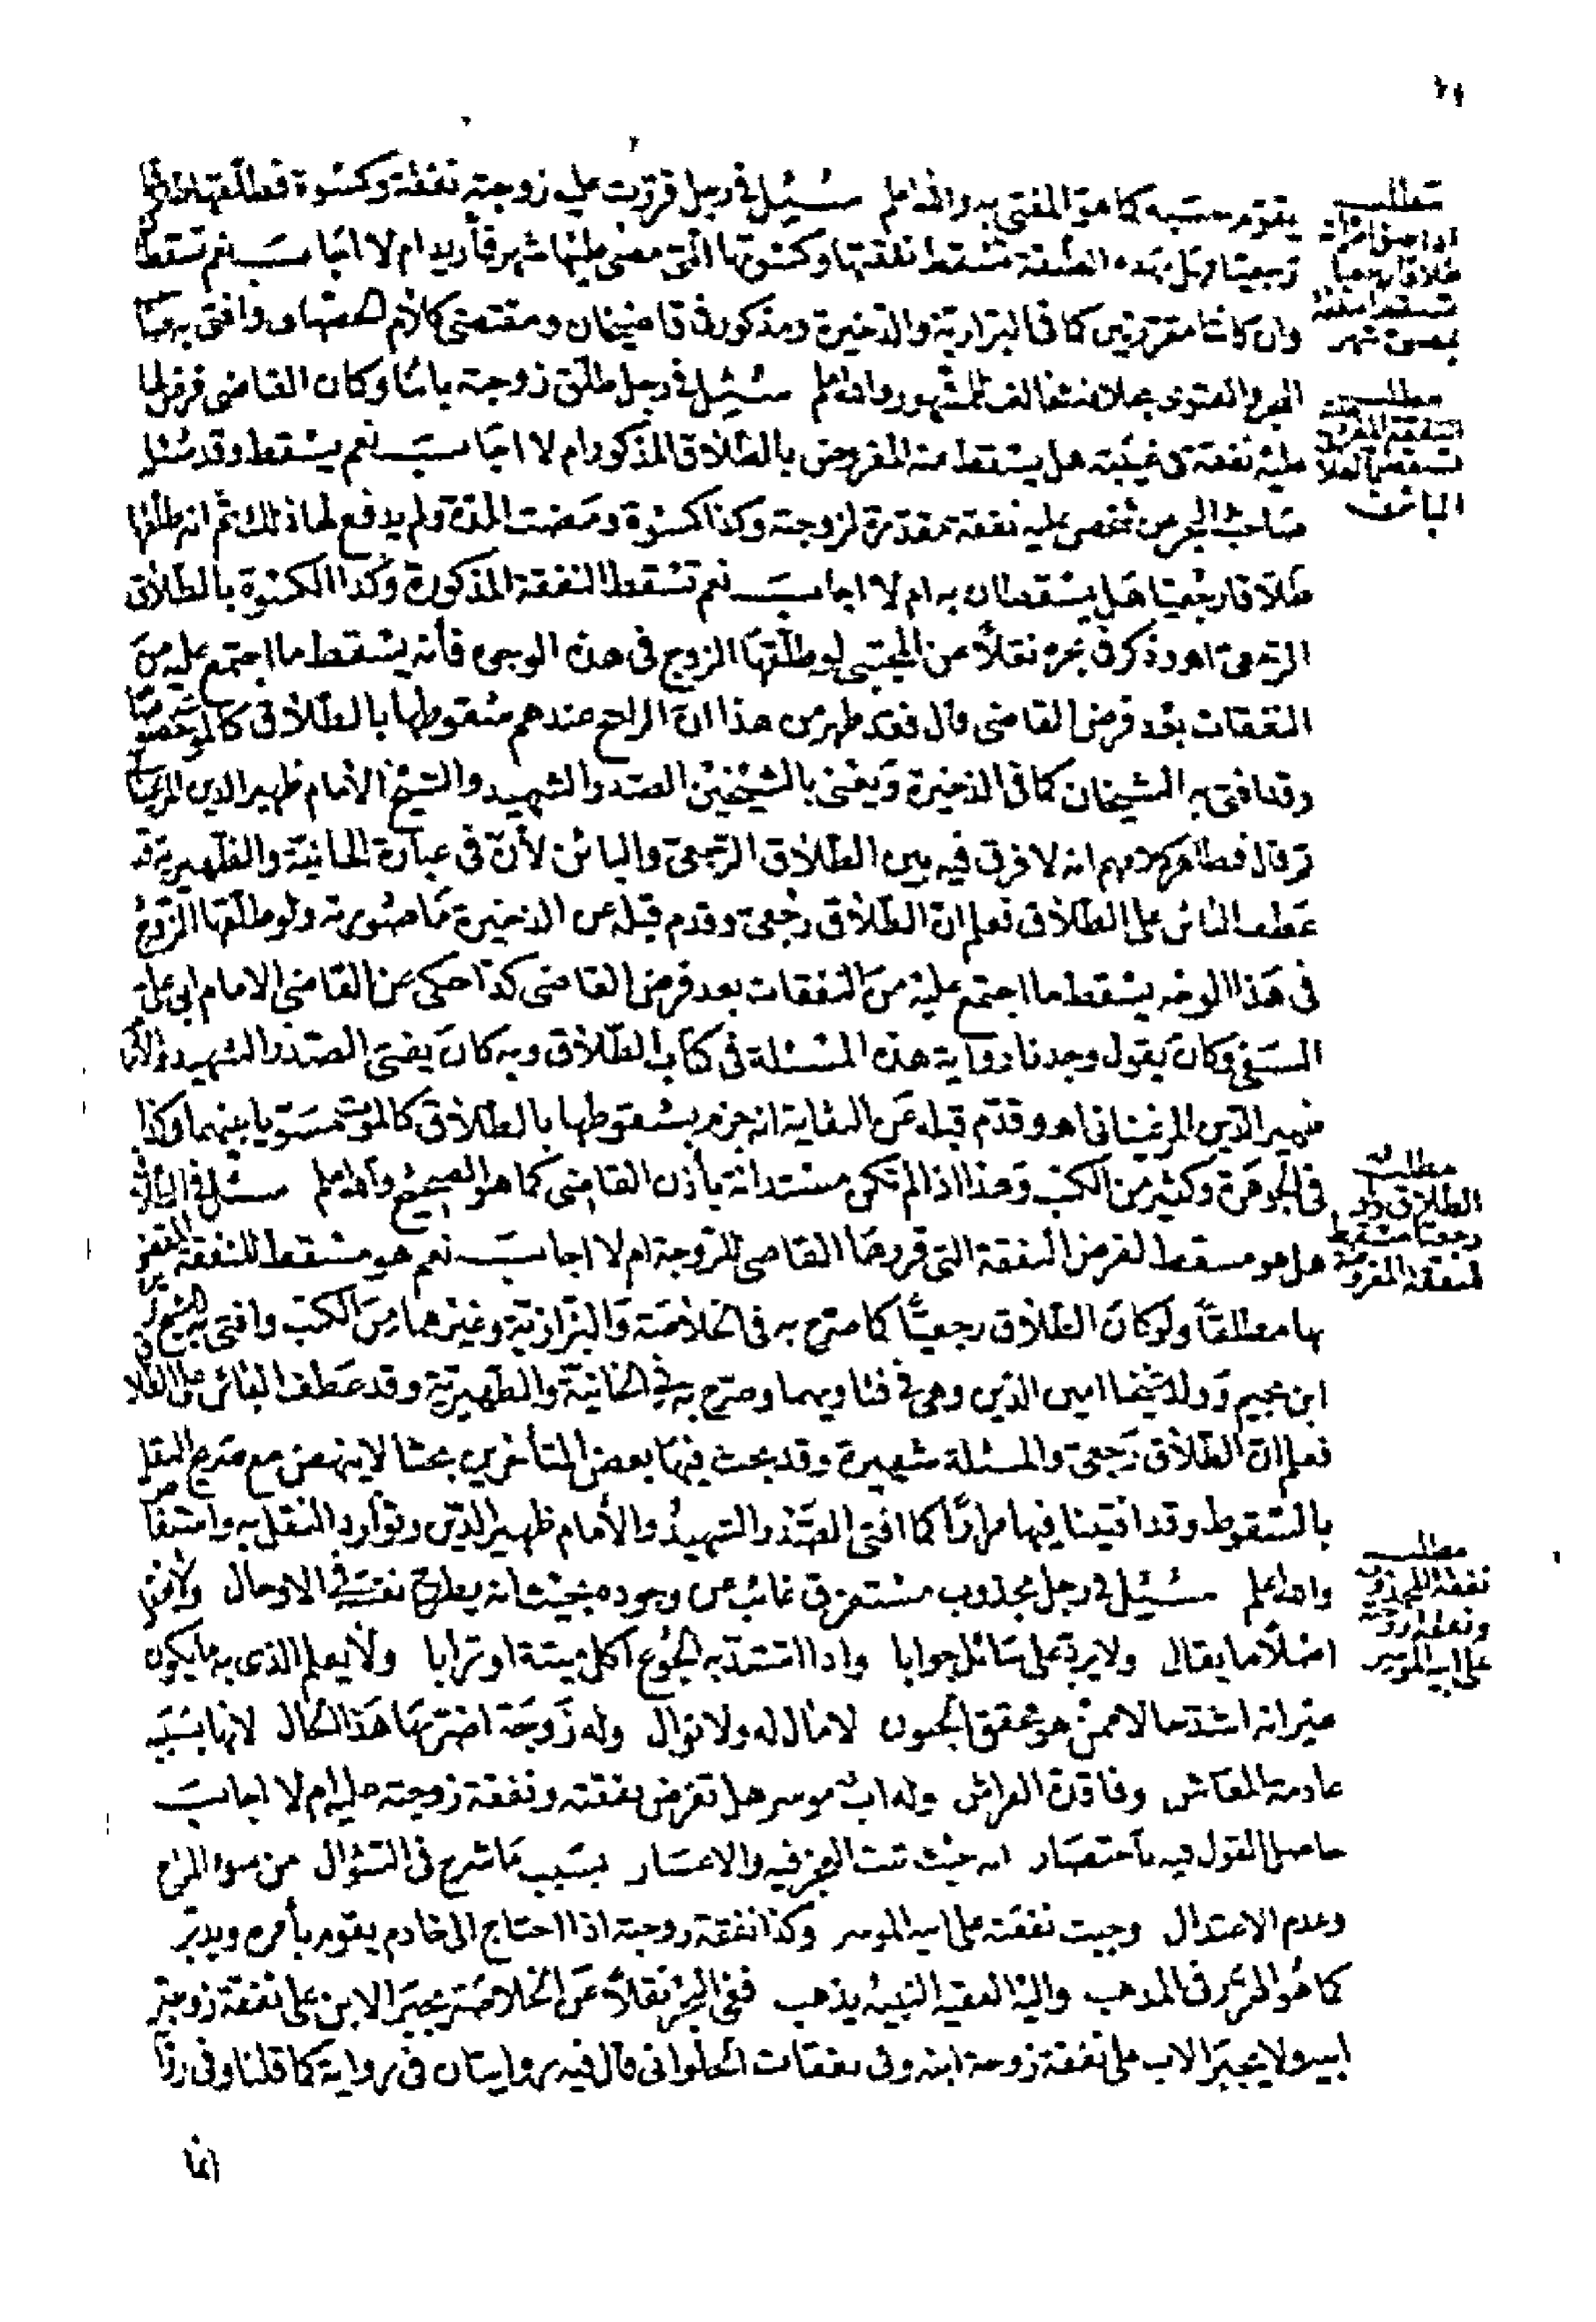 يقوم حسبه كما هو المفتى به والله اعلم سئل في رجل قررت عليه زوجته نفقة وكسوة فطلقها طلاقا
رجعيا وهل بهذه الطلقة تسقط نفقتها وكسوتها التي مضى عليها شهر فأزيد ام لا اجاب نعم تسقط
وان كانتا مقررتين كما في البزازية والذخيرة ومذكور في قاضيخان ومقتضى كلام وافتى به
والفتوى بخلافه مخالف للمشهور والله اعلم سئل في رجل طلق زوجته بائنا وكان القاضي فرض لها
عليه نفقة في غيبته هل يسقط عنه المفروض بالطلاق المذكور ام لا اجاب نعم يسقط وقد سئل
صاحب البحر عن شخص عليه نفقة مقدرة لزوجته وكذا كسوة ومضت المدة ولم يدفع لها ذلك ثم انه طلقها
طلاقا رجعيا هل يسقطان به ام لا اجاب نعم تسقط النفقة المذكورة وكذا الكسوة بالطلاق
الرجعي اهـ وذكر في بحره نقلا عن المجتبى لو طلقها الزوج في هذه الوجوه فأنه يسقط ما اجتمع عليه من
النفقات بعد فرض القاضي قال فقد ظهر من هذا ان الراجح عندهم سقوطها بالطلاق كالموت
وقد افتى به الشيخان كما في الذخيرة ويعنى بالشيخين الصدر الشهيد والشيخ الامام ظهير الدين المرغينا
ثم قال فظاهر كلامهم انه لا فرق فيه بين الطلاق الرجعي والبائن لأن في عبارة الخانية والظهيرية قد
عطف البائن على الطلاق فعلم ان الطلاق رجعي وقدم قبله عن الذخيرة ما صورته ولو طلقها الزوج
في هذا الوجه يسقط ما اجتمع عليه من النفقات بعد فرض القاضي كذا حكى عن القاضي الامام ابي علي
النسفي وكان يقول وجدنا رواية هذه المسئلة في كتاب الطلاق وبه كان يفتى الصدر الشهيد والامام
ظهير الدين المرغيناني اهـ وقدم قبله عن النقاية انه جزم بسقوطها بالطلاق كالموت مسويا بينهما وكذا
في الجوهرة وكثير من الكتب وهذا اذا لم تكن مستدانة بأذن القاضي كما هو الصحيح والله اعلم سئل في الطلاق
هل هو مسقط لفرض النفقة التي قررها القاضي للزوجة ام لا اجاب نعم هو مسقط للنفقة المقضي
بها مطلقا ولو كان الطلاق رجعيا كما صرح به في الخلاصة والبزازية وغيرهما من الكتب وافتى به
ابن نجيم وولد شيخنا امين الدين وهي في فتاويهما وصرح به في الخانية والظهيرية وقد عطف البائن على الطلا
فعلم ان الطلاق رجعي والمسئلة شهيرة وقد بحث فيها بعض المتأخرين بحثا لا ينهض مع صريح النقل
بالسقوط وقد افتينا فيها مرارا كما افتى الصدر الشهيد والأمام ظهير الدين وتوارد النقل به
والله اعلم سئل في رجل مجذوب مستغرق غائب عن وجوده بحيث انه نفسه في الاوحال ولا يفهم
اصلا ما يقال ولا يرد على سائل جوابا واذا اشتد به الجوع اكل ميتة او ترابا ولا يعلم الذي به ما يكون
غير انه اشد حالا ممن هو محقق الجنون لا مال له ولا نوال وله زوجة اضر بها هذا الحال لانها بسببه
عادمة المعاش وفاقدة الفراش وله اب موسر هل تفرض نفقته ونفقة زوجته عليه ام لا اجاب
حاصل القول فيه باختصار انه حيث ثبت العجز فيه والاعسار بسبب ما شرح في السؤال من سوء المزاج
وعدم الاعتدال وجبت نفقته على ابيه الموسر وكذا نفقة زوجته اذا احتاج الى خادم يقوم بأمره ويدبر
كما هو المحرر في المذهب واليه الفقيه النبيه يذهب ففي البحر نقلا عن الخلاصة يجبر الابن على نفقة زوجة
ابيه ولا يجبر الاب على نفقة زوجة ابنه وفي نفقات الحلواني قال فيه روايتان في رواية كما قلنا وفي رواية
انما
مطلب
طلاقا رجعيا
تسقط نفقة
بمضي شهر
مطلب
النفقة المفروضة
تسقط بالطلاق
البائن
مطلب
الطلاق ولو
رجعيا مسقط
للنفقة المفروضة
مطلب
نفقة المجذوب
ونفقة زوجته
على ابيه الموسر